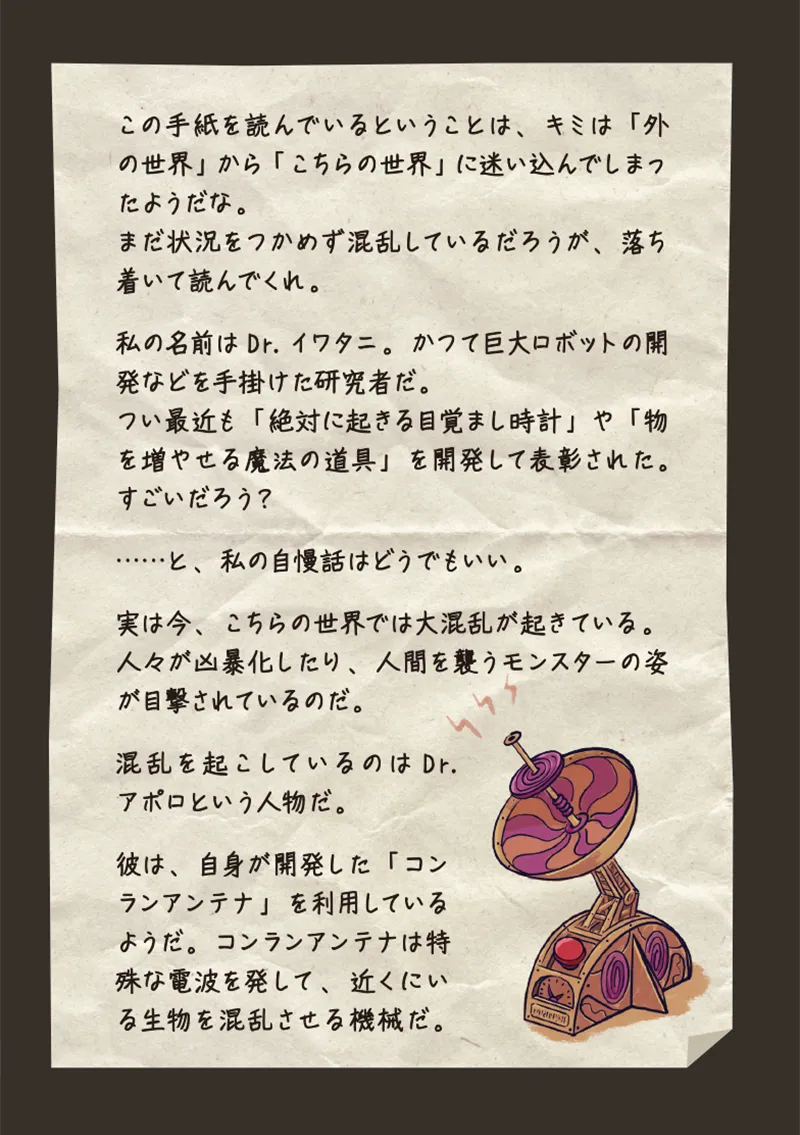 この手紙を読んでいるということは、キミは「外
の世界」から「こちらの世界」に迷い込んでしまっ
たようだな。
まだ状況をつかめず混乱しているだろうが、落ち
着いて読んでくれ。
私の名前はDr.イワタニ。かつて巨大ロボットの開
発などを手掛けた研究者だ。
つい最近も「絶対に起きる目覚まし時計」や「物
を増やせる魔法の道具」を開発して表彰された。
すごいだろう?
……と、私の自慢話はどうでもいい。
実は今、こちらの世界では大混乱が起きている。
人々が凶暴化したり、人間を襲うモンスターの姿
が目撃されているのだ。
混乱を起こしているのはDr.
アポロという人物だ。
彼は、自身が開発した「コン
ランアンテナ」を利用している
ようだ。コンランアンテナは特
殊な電波を発して、近くにい
る生物を混乱させる機械だ。